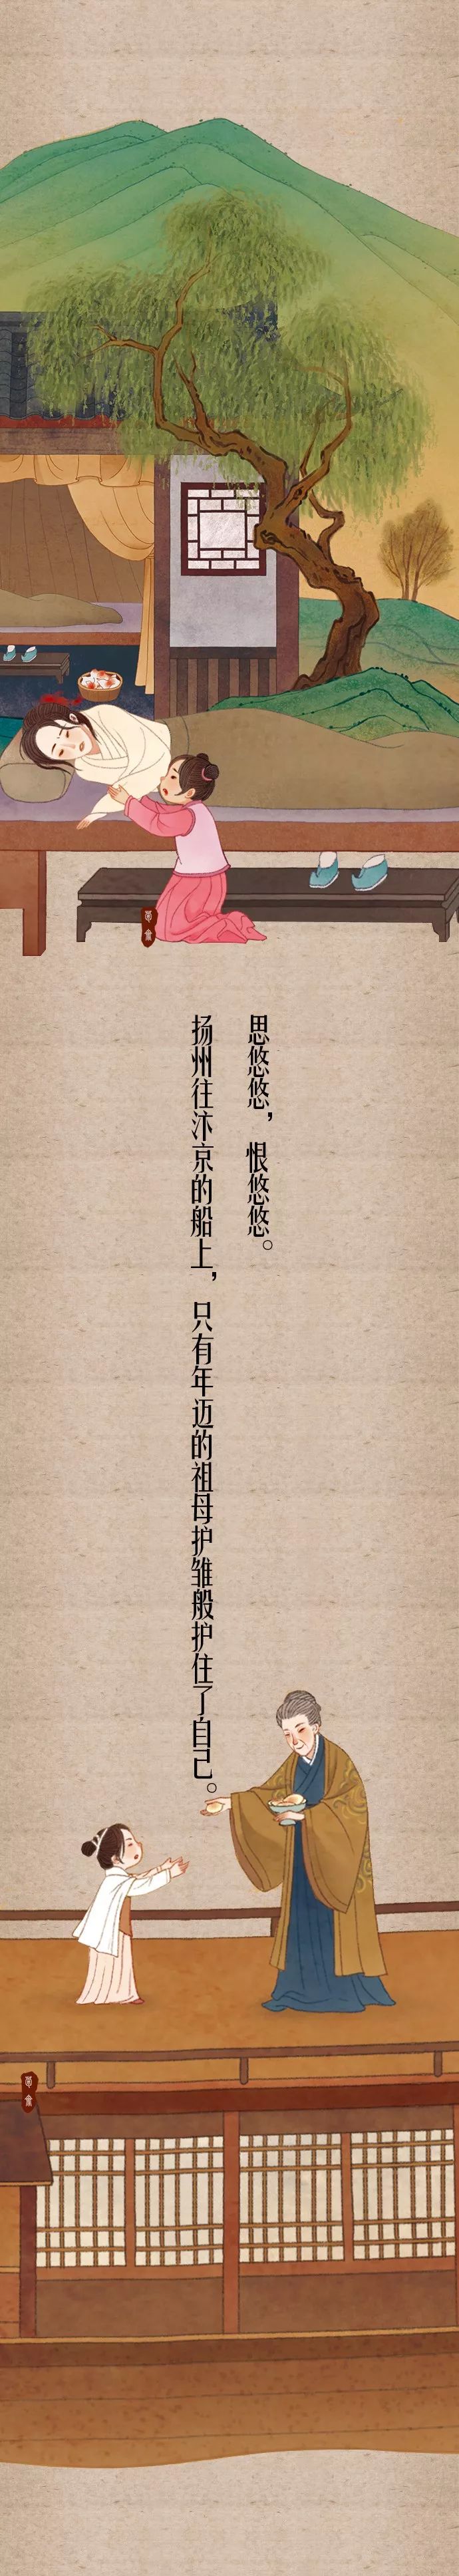 思悠悠，恨悠悠。
扬州往汴京的船上，只有年迈的祖母护雏般护住了自己。